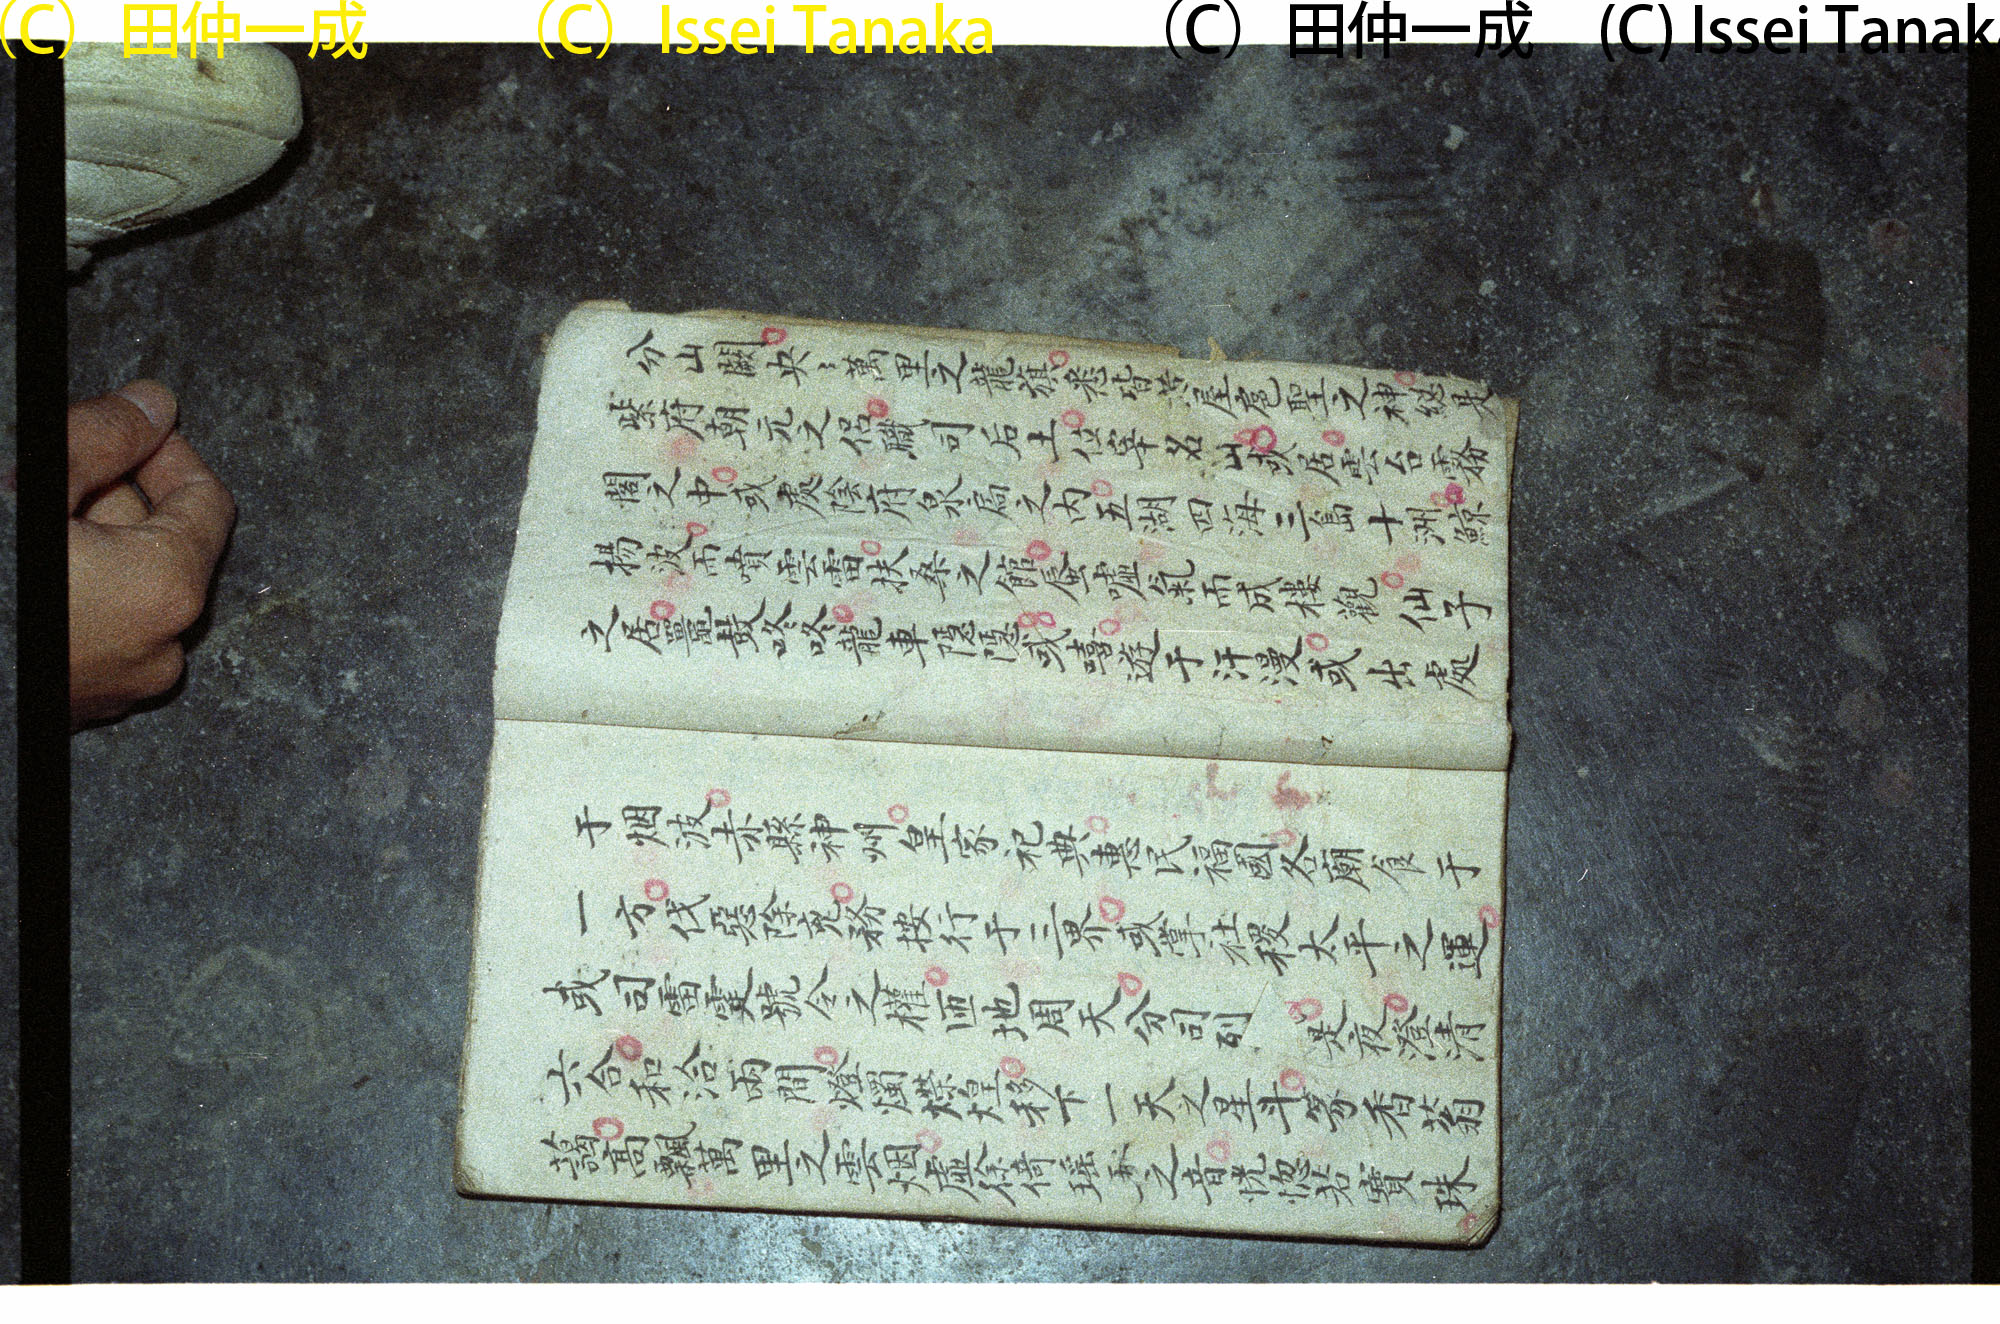 (C) 田仲一成 (C) Issei Tanaka (C) 田仲一成 (C) Issei Tanaka
分山闕央〻萬里之龍旗悉皆共屋聖之神總是
紫府朝元之侶職司后土位宰名山或居雲台霧
閣之中或處陰府泉扃之内五湖四海三島十洲鯨
揚波而噴雲雷扶桑之館蜃嘘氣而成樓觀仙子
之居鼉鼓咚咚龍車隱隱或嘻遊于汗漫或出處
于烟波赤縣神州皇家祀典惠民福國各廟食于
一方伐惡除兇務按行于三界或掌社稷太平之運
或司雷霆號令之權匝地周天分司列 是夜澄清
六合和洽兩間燈燭熒煌移下一天之星斗篆香蓊
藹高飄萬里之雲烟虛徐倚瑤之音恍惚若寶珠